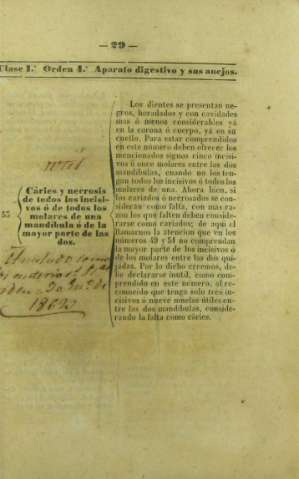 — 29 —
Clase 1.ª Orden 4.º Aparato digestivo y sus anejos.
inútil
55
Cáries y necrosis
de todos los incisi-
vos ó de todos los
molares de una
mandíbula ó de la
mayor parte de las
dos.
1862
Los dientes se presentan ne-
gros, horadados y con cavidades
mas ó menos considerables ya
en la corona ó cuerpo, ya en su
cuello. Para estar comprendidos
en este número deben ofrecer los
mencionados signos cinco incisi-
vos ó once molares entre las dos
mandíbulas, cuando no los ten-
gan todos los incisivos ó todos los
molares de una. Ahora bien, si
los cariados ó necrosados se con-
sideran como falta, con mas ra-
zon los que falten deben conside-
rarse como cariados; de aqui el
llamarnos la atencion que en los
números 49 y 51 no comprendan
la mayor parte de los incisivos ó
de los molares entre las dos qui-
jadas. Por lo dicho creemos, de-
be declararse inutil, como com-
prendido en este número, al re-
conocido que tenga solo tres inci-
sivos ó nueve muelas útiles en-
tre las dos mandíbulas, conside-
rando la falta como cáries.